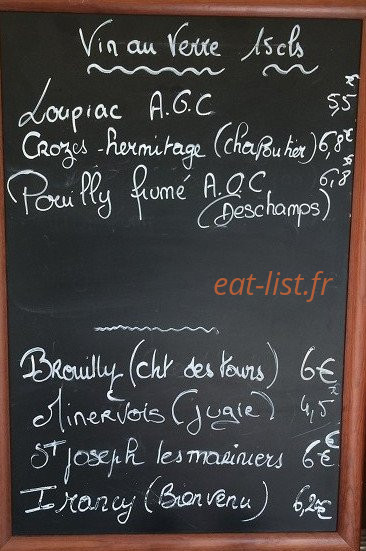 Vin au Verre 15cls
Loupiac A.O.C 5,5€
Crozes-hermitage (chapoutier) 6,8€
Pouilly fumé A.O.C 6,8€
(Deschamps)
eat-list.fr
Brouilly (cht des tours) 6€
Minervois (Jugie) 4,5€
St joseph les mariniers 6€
Irancy (Bienvenu) 6,2€